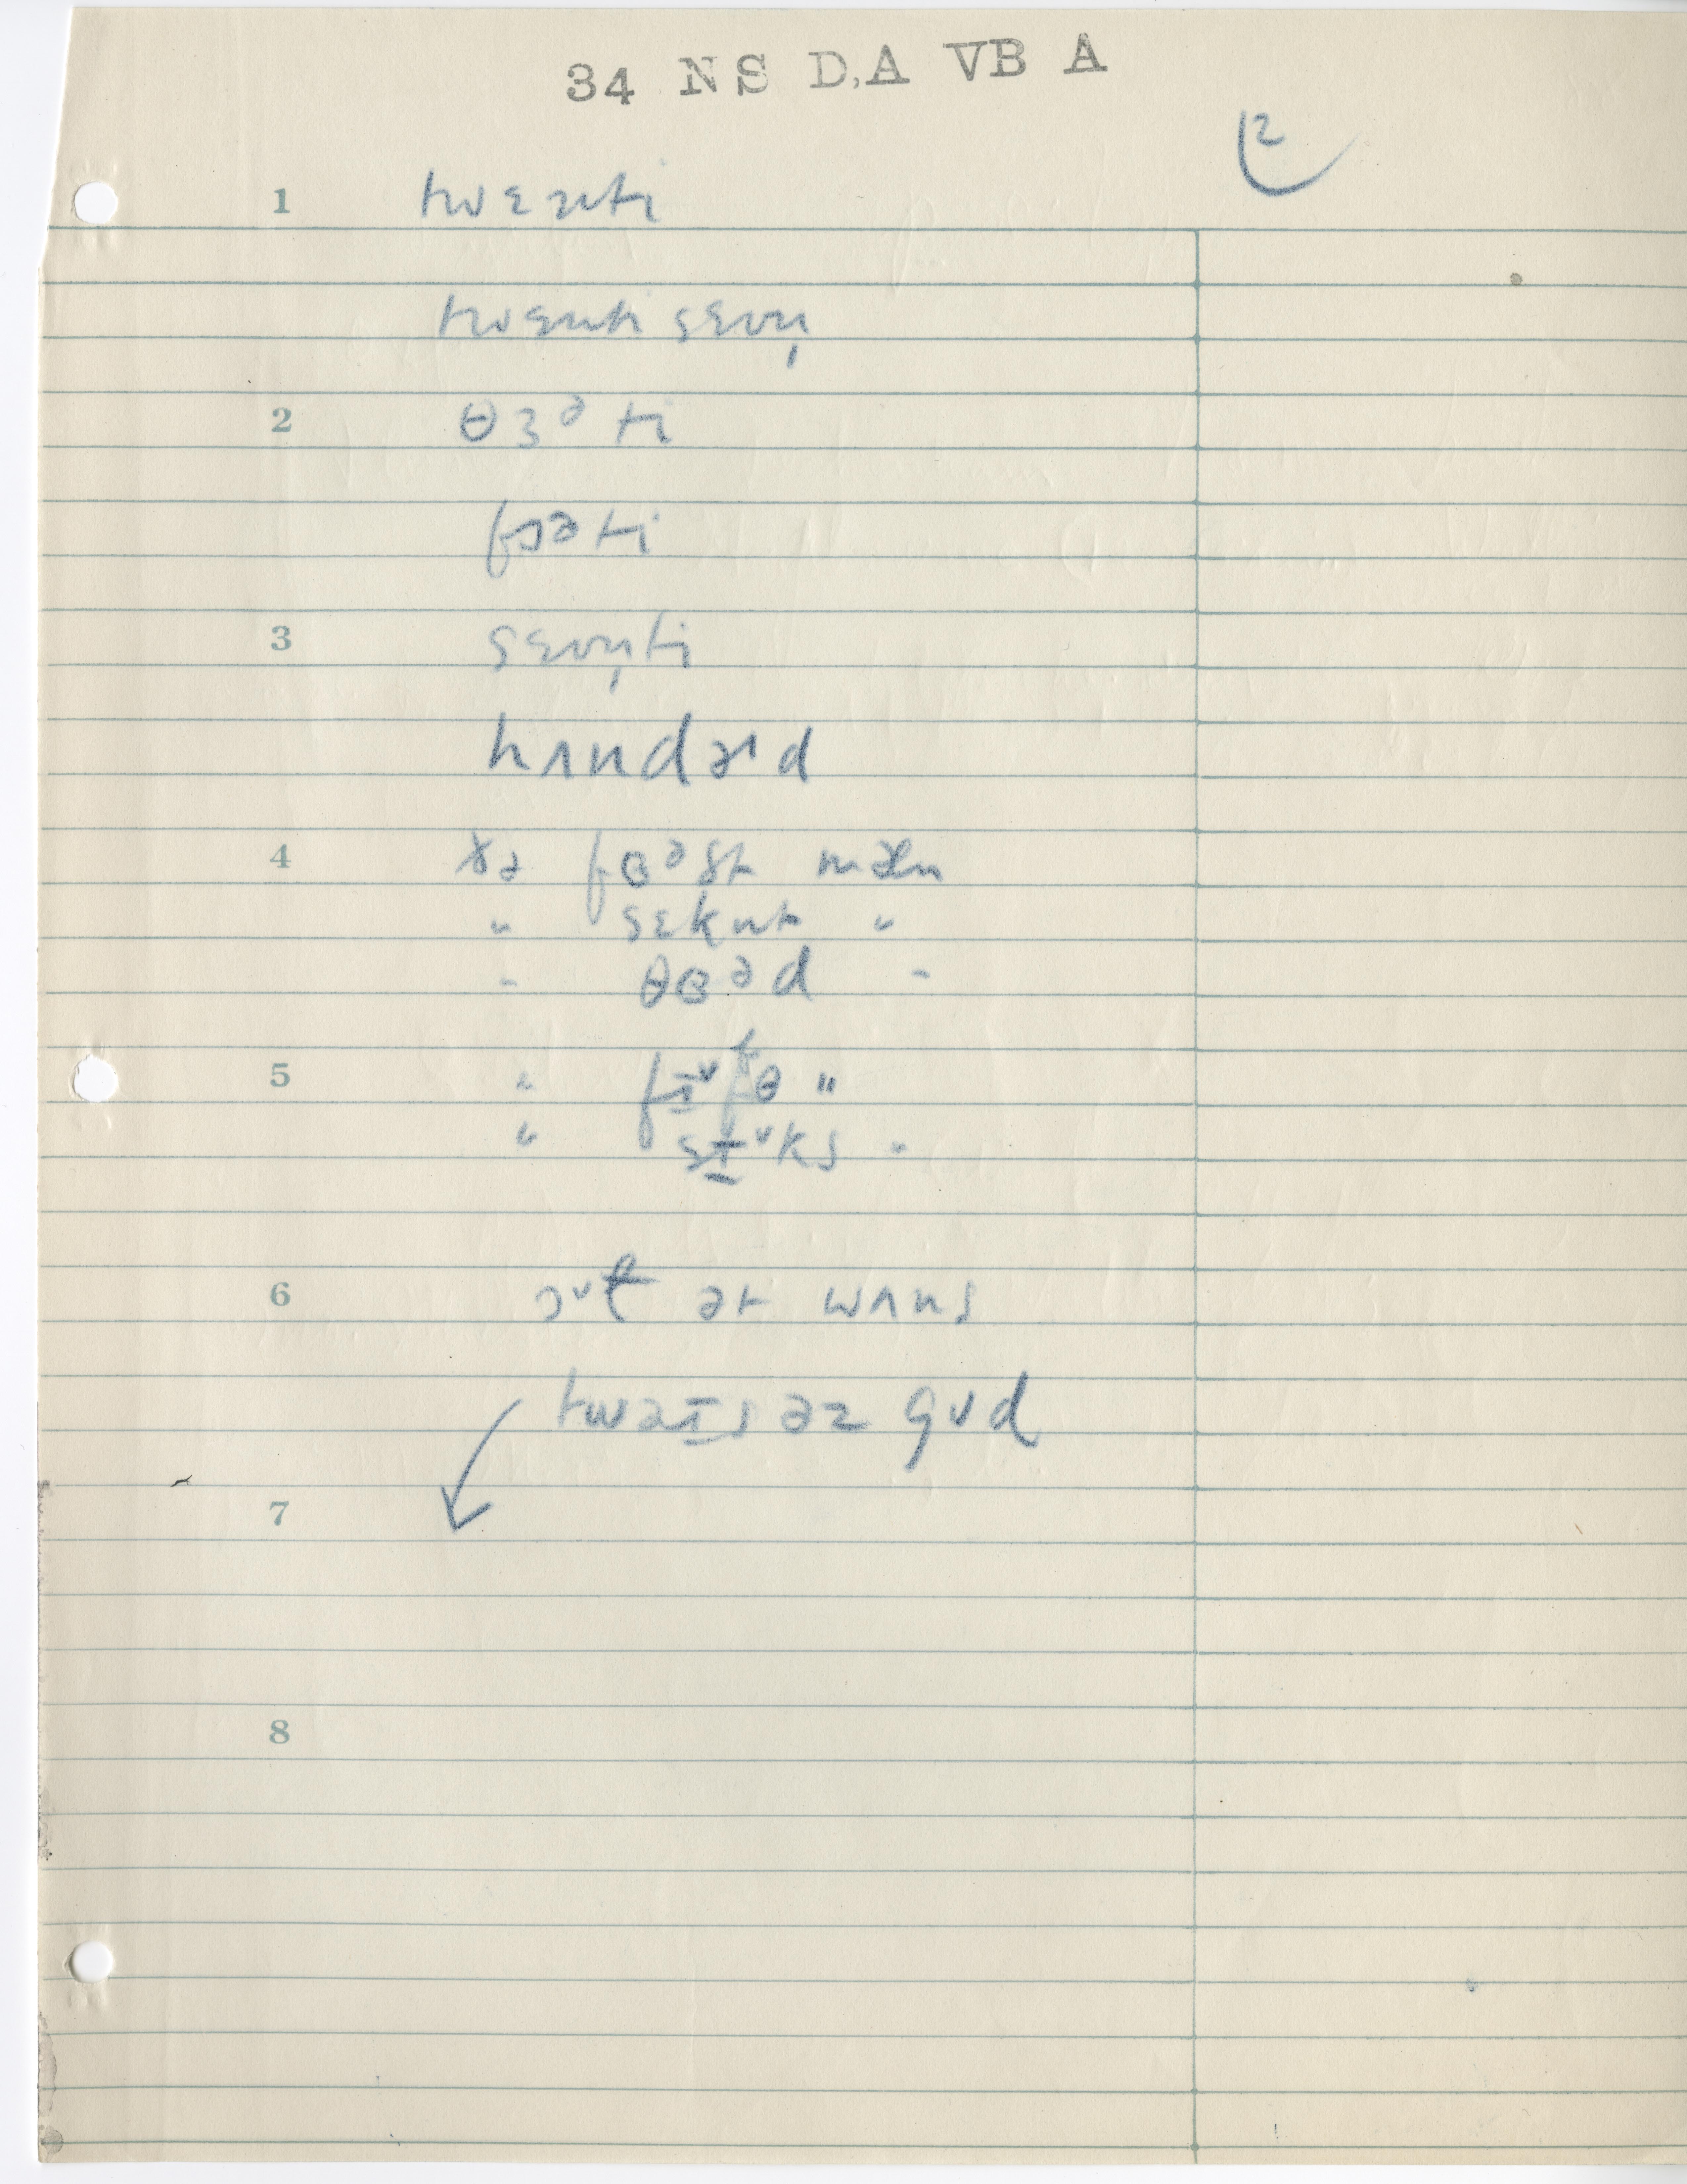 34 NS D,A VB A
12
1 twɛnti
twɛnti sɛvn̩
2 θɜᵊti
fɔəti
3 sɛvn̩ti
hʌndərd
4 ðə fɞᵊst mæn
" sɛknt "
" θɞᵊd "
5 " "
" "
6 ət wʌns
twaɪs əz gud
7
8